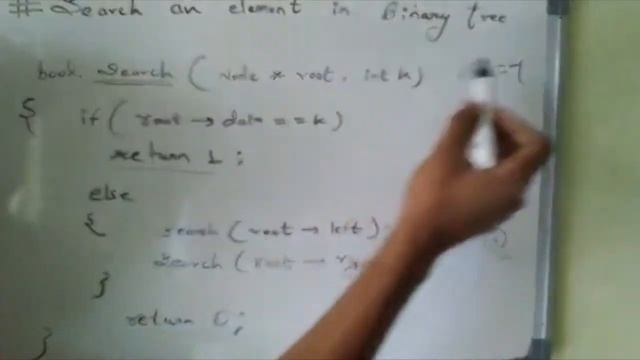 # Search an element in Binary tree
book. Search ( Node * root, int k) =7
{ if ( root → data = = k )
return 1 ;
else
{ search ( root → left )
search ( root →
}
return 0 ;
}